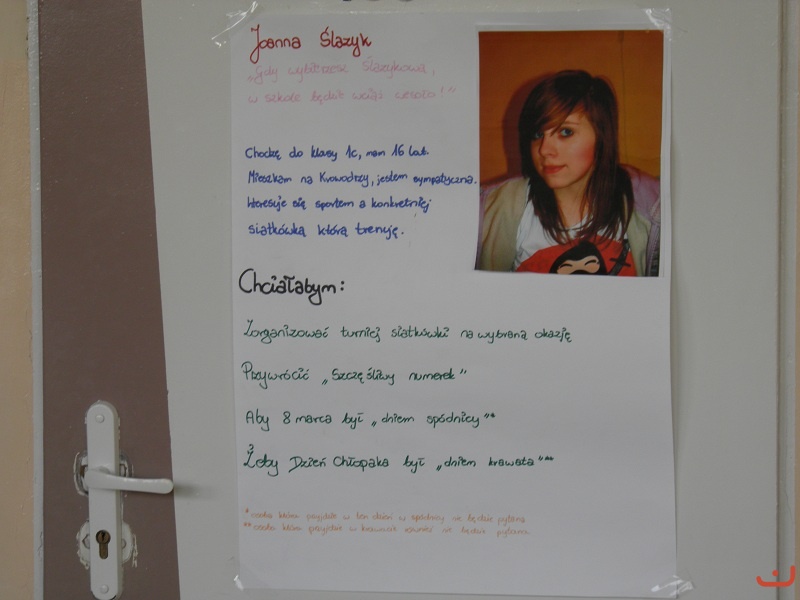 Joanna Ślazyk
„Gdy wybierzesz Ślazykową,
w szkole będzie wciąż wesoło!"
Chodzę do klasy 1c, mam 16 lat.
Mieszkam na Krowodrzy, jestem sympatyczna.
Interesuje się sportem a konkretniej
siatkówką którą trenuję.
Chciałabym:
Zorganizować turniej siatkówki na wybraną okazję
Przywrócić „Szczęśliwy numerek"
Aby 8 marca był „dniem spódnicy"*
Żeby Dzień Chłopaka był „dniem krawata"**
* osoba która przyjdzie w ten dzień w spódnicy nie będzie pytana
** osoba która przyjdzie w krawacie również nie będzie pytana